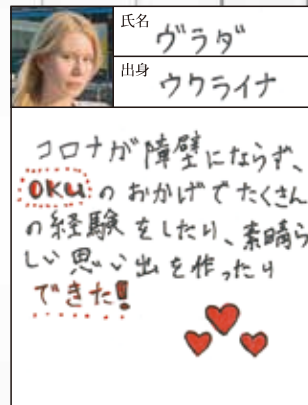 氏名 ヴラダ
出身 ウクライナ
コロナが障壁にならず、
OKUのおかげでたくさん
の経験をしたり、素晴ら
しい思い出を作ったり
できた!